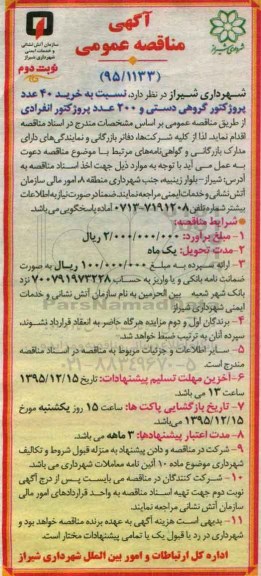 آگهی
مناقصه عمومی
شهرداری شیراز
سازمان آتش نشانی
و خدمات ایمنی
شهرداری شیراز
نوبت دوم
(۹۵/۱۱۳۳)
شهرداری شیراز در نظر دارد، نسبت به خرید ۴۰ عدد
پروژکتور گروهی دستی و ۲۰۰ عدد پروژکتور انفرادی
از طریق مناقصه عمومی بر اساس مشخصات مندرج در اسناد مناقصه
اقدام نماید. لذا از کلیه شرکت‌ها، دفاتر بازرگانی و نمایندگی‌های دارای
مدارک بازرگانی و گواهی‌نامه‌های مرتبط با موضوع مناقصه دعوت
به عمل می آید با توجه به موارد ذیل جهت اخذ اسناد مناقصه به
آدرس: شیراز - بلوار زینبیه، جنب شهرداری منطقه ۸، امور مالی سازمان
آتش نشانی و خدمات ایمنی مراجعه نمایند. ضمنا در صورت نیاز به اطلاعات
بیشتر شماره تلفن ۷۱۹۱۲۰۸-۰۷۱۳ آماده پاسخگویی می‌باشد.
شرایط مناقصه:
۱- مبلغ برآورد: ۲/۰۰۰/۰۰۰/۰۰۰ ریال
۲- مدت تحویل: یک ماه
۳- ارائه سپرده به مبلغ ۱۰۰/۰۰۰/۰۰۰ ریال به صورت
ضمانت نامه بانکی و یا واریز به حساب ۷۰۰۷۹۱۹۷۳۲۲۸ نزد
بانک شهر شعبه بین الحرمین به نام سازمان آتش نشانی و خدمات
ایمنی شهرداری شیراز
۴- برندگان اول و دوم مزایده هرگاه حاضر به انعقاد قرارداد نشوند،
سپرده آنان به ترتیب ضبط خواهد شد.
۵- سایر اطلاعات و جزئیات مربوط به مناقصه در اسناد مناقصه
مندرج است.
۶- آخرین مهلت تسلیم پیشنهادات: تاریخ ۱۳۹۵/۱۲/۱۵
ساعت ۱۳ می باشد.
۷- تاریخ بازگشایی پاکت ها: ساعت ۱۵ روز یکشنبه مورخ
۱۳۹۵/۱۲/۱۵ می‌باشد.
۸- مدت اعتبار پیشنهادها: ۳ ماهه می باشد.
۹- شرکت در مناقصه و دادن پیشنهاد به منزله قبول شروط و تکالیف
شهرداری موضوع ماده ۱۰ آئین نامه معاملات شهرداری می باشد.
۱۰- شرکت کنندگان در مناقصه می بایست پس از درج آگهی
نوبت دوم جهت تهیه اسناد مناقصه به واحد قراردادهای امور مالی
سازمان آتش نشانی مراجعه نمایند.
۱۱- بدیهی است هزینه آگهی به عهده برنده مناقصه خواهد بود و
شهرداری در رد یا قبول یک یا تمامی پیشنهادات مختار است.
اداره کل ارتباطات و امور بین الملل شهرداری شیراز